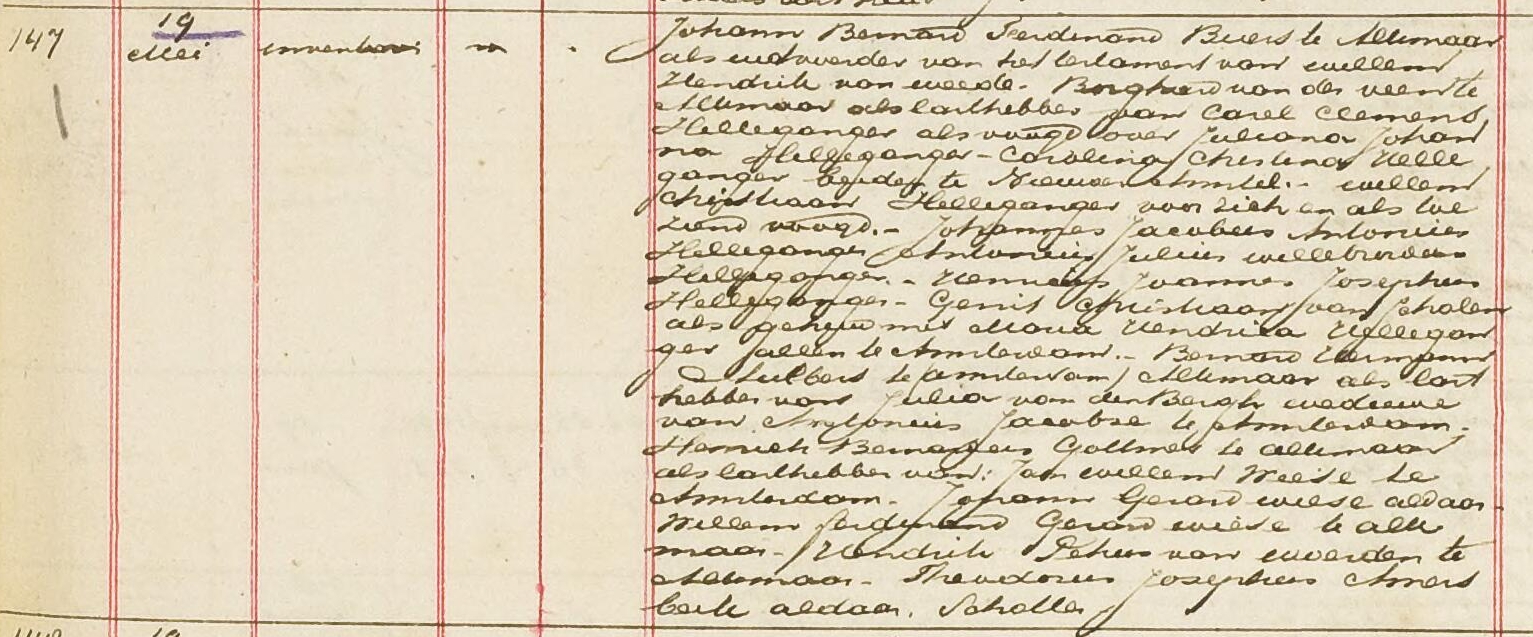 147
19
Mei
inventaris
Johann Bernard Ferdinand Buers te Alkmaar
als uitvoerder van het testament van willem
Hendrik van weede. Borghard van der veen te
Alkmaar als lasthebber van Carel Clemens
Helleganger als voogd over Juliana Johan
na Helleganger - Carolina Christina Helle
ganger beiden te Nieuwer Amstel. - willem
Christiaan Helleganger voor zich en als toe
ziend voogd. - Johannes Jacobus Antonius
Helleganger Antonius Julius willebrordus
Helleganger. - Henricus Joannes Josephus
Helleganger - Gerrit Christiaan van Scholen
als gehuwd met Maria Hendrica Hellegan
ger allen te Amsterdam. - Bernard Hermann
te (Amsterdam) Alkmaar als last
hebber van Julia van den Bergh weduwe
van Antonius Jacobse te Amsterdam.
Henrich Gottmer te alkmaar
als lasthebber van: Jan willem Weise te
Amsterdam. Johann Gerard wiese aldaar -
Willem ferdinand Gerard wiese te alk
maar - Hendrik van woerden te
Alkmaar - Theodorus Josephus Amers
beek aldaar.
19